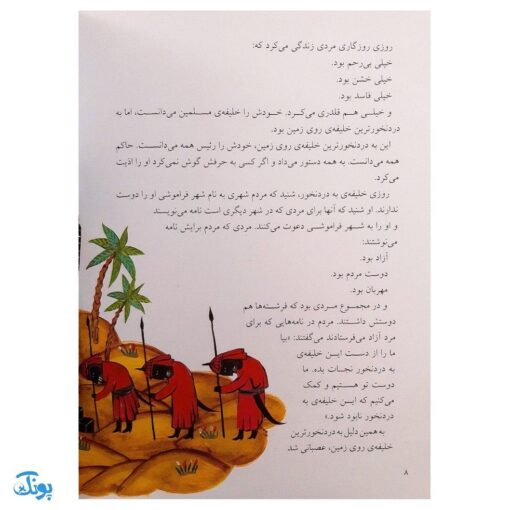 روزی روزگاری مردی زندگی می‌کرد که:
خیلی بی‌رحم بود.
خیلی خشن بود.
خیلی فاسد بود.
و خیلی هم قلدری می‌کرد. خودش را خلیفه‌ی مسلمین می‌دانست، اما به
دردنخورترین خلیفه‌ی روی زمین بود.
این به دردنخورترین خلیفه‌ی روی زمین، خودش را رئیس همه می‌دانست. حاکم
همه می‌دانست. به همه دستور می‌داد و اگر کسی به حرفش گوش نمی‌کرد او را اذیت
می‌کرد.
روزی خلیفه‌ی به دردنخور، شنید که مردم شهری به نام شهر فراموشی او را دوست
ندارند. او شنید که آنها برای مردی که در شهر دیگری است نامه می‌نویسند
و او را به شهر فراموشی دعوت می‌کنند. مردی که مردم برایش نامه
می‌نوشتند:
آزاد بود.
دوست مردم بود.
مهربان بود.
و در مجموع مردی بود که فرشته‌ها هم
دوستش داشتند. مردم در نامه‌هایی که برای
مرد آزاد می‌فرستادند می‌گفتند: «بیا
ما را از دست این خلیفه‌ی
به دردنخور نجات بده. ما
دوست تو هستیم و کمک
می‌کنیم که این خلیفه‌ی به
دردنخور نابود شود.»
به همین دلیل به دردنخورترین
خلیفه‌ی روی زمین، عصبانی شد
۸
پونک